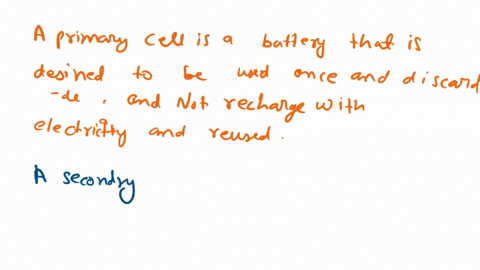 A primary cell is a battery that is
desined to be used once and discard
-de, and Not recharge with
electricity and reused.
A secondry